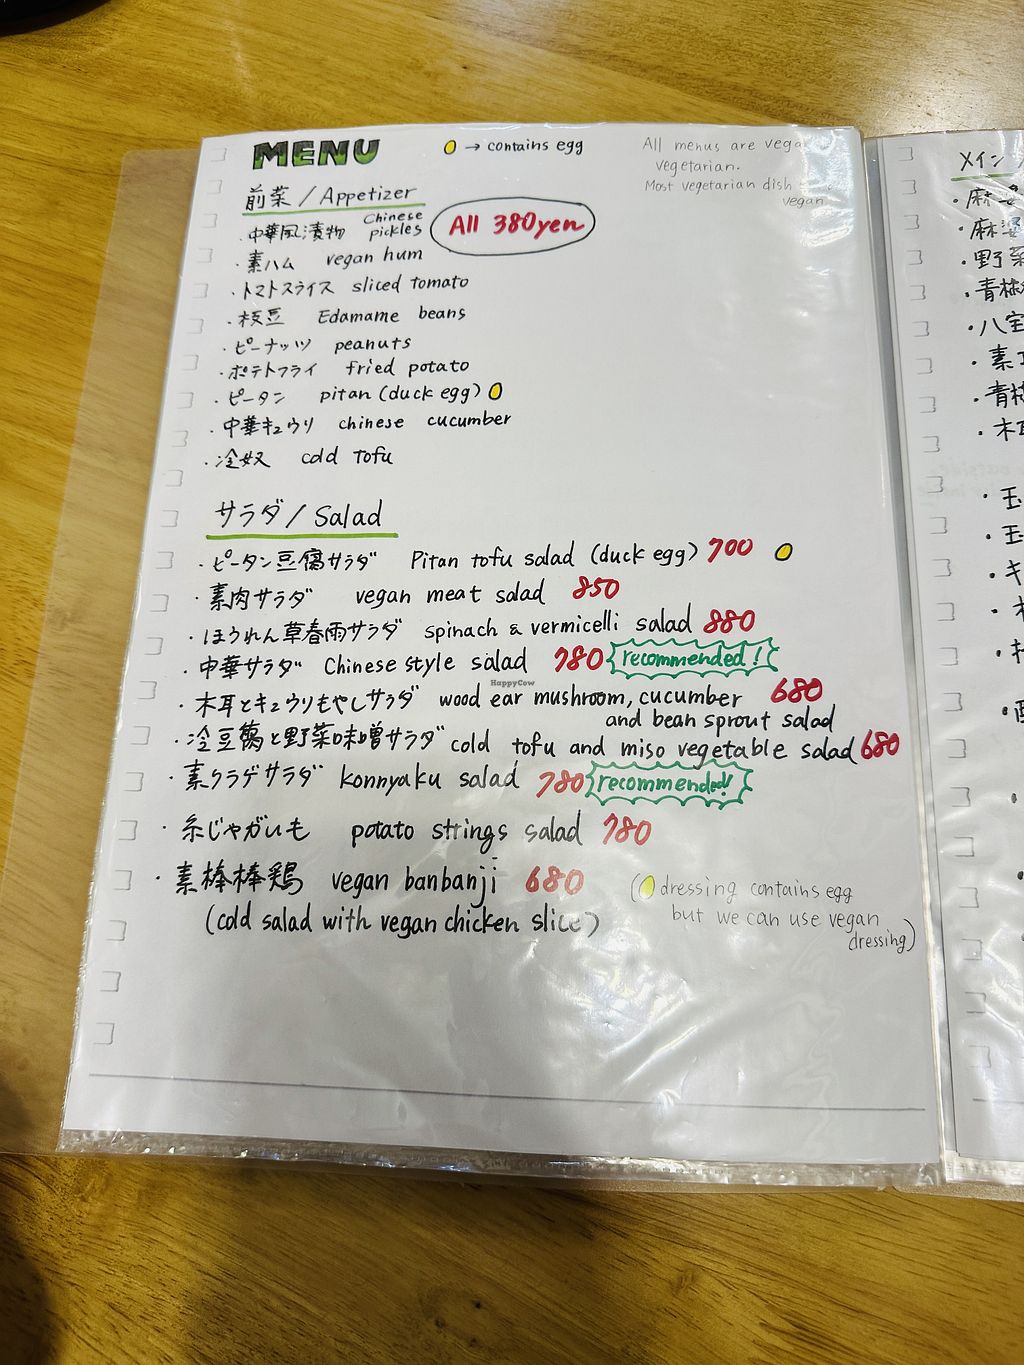 MENU
→ contains egg
All menus are vega
vegetarian.
Most vegetarian dish
vegan
前菜 / Appetizer
All 380yen
・中華風漬物 Chinese pickles
・素ハム vegan hum
・トマトスライス sliced tomato
・枝豆 Edamame beans
・ピーナッツ peanuts
・ポテトフライ fried potato
・ピータン pitan (duck egg)
・中華キュウリ chinese cucumber
・冷奴 cold tofu
サラダ / Salad
・ピータン豆腐サラダ Pitan tofu salad (duck egg) 700
・素肉サラダ vegan meat salad 850
・ほうれん草春雨サラダ spinach & vermicelli salad 880
・中華サラダ Chinese style salad 780 recommended!
・木耳とキュウリもやしサラダ wood ear mushroom, cucumber 680
and bean sprout salad
・冷豆腐と野菜味噌サラダ cold tofu and miso vegetable salad 680
・素クラゲサラダ konnyaku salad 780 recommended!
・糸じゃがいも potato strings salad 780
・素棒棒鶏 vegan banbanji 680
(cold salad with vegan chicken slice)
(dressing contains egg
but we can use vegan
dressing)
HappyCow
メイン /
・麻婆
・麻婆
・野菜
・青椒
・八宝
・素
・青椒
・木耳
・玉
・玉
・キ